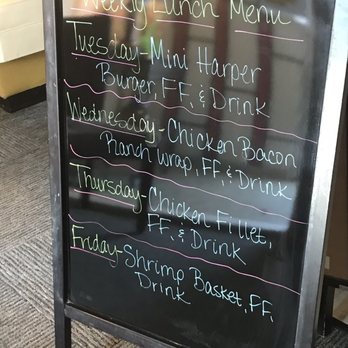 Weekly Lunch Menu
Tuesday-Mini Harper
Burger, FF, & Drink
Wednesday-Chicken Bacon
Ranch Wrap, FF, & Drink
Thursday-Chicken Fillet,
FF, & Drink
Friday-Shrimp Basket, FF,
Drink